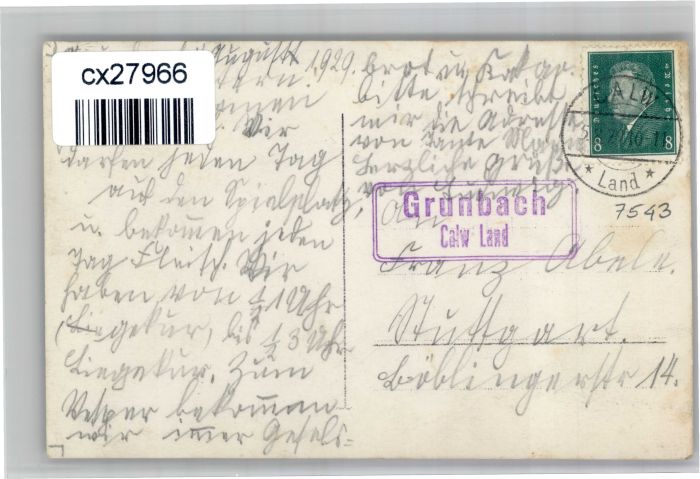 cx27966
August 1929.
Wir
dürfen jeden Tag
auf den Spielplatz,
u. bekommen jeden
Tag Fleisch. Wir
haben von ½ 1 Uhr
(Liegekur) bis ½ 3 Uhr
Liegekur. Zum
Vesper bekommen
wir immer Gesels=
brot u. Kakao.
Bitte schreibt
mir die Adresse
von Tante
Herzliche Grüße
von
An
Franz Abele.
Stuttgart.
Böblingerstr 14.
Deutsches Reich
8 8
CALW
Land
7543
Grünbach
Calw Land